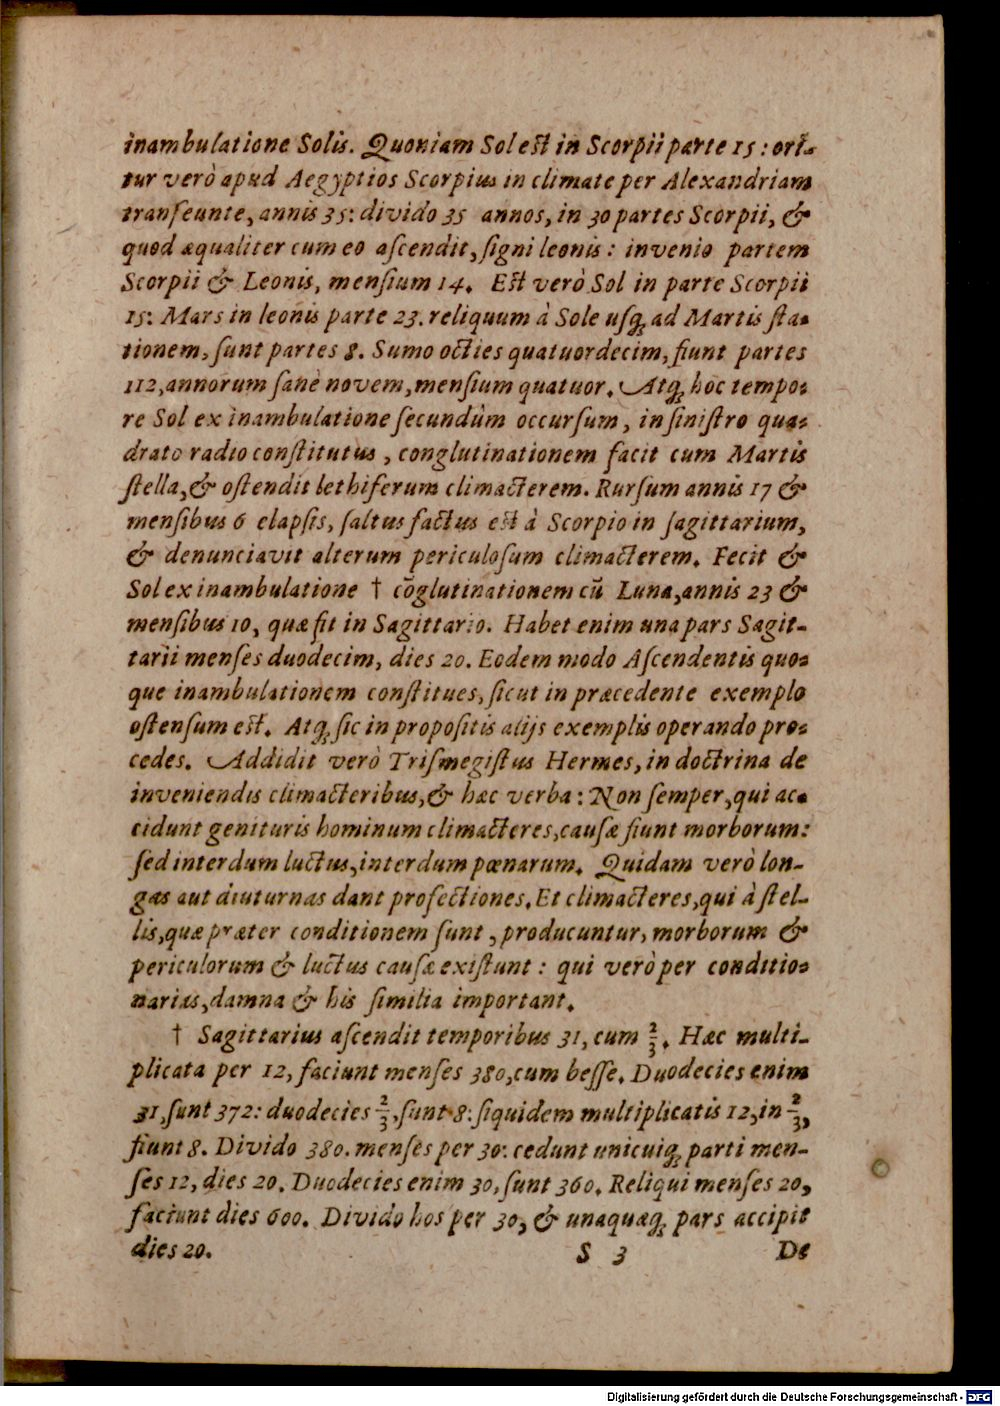 inambulatione Solis. Quoniam Sol est in Scorpii parte 15: ori-
tur verò apud Aegyptios Scorpius in climate per Alexandriam
transeunte, annis 35: divido 35 annos, in 30 partes Scorpii, &
quod æqualiter cum eo ascendit, signi leonis: invenio partem
Scorpii & Leonis, mensium 14. Est verò Sol in parte Scorpii
15: Mars in leonis parte 23. reliquum à Sole usq; ad Martis sta-
tionem, sunt partes 8. Sumo octies quatuordecim, fiunt partes
112, annorum sanè novem, mensium quatuor. Atq; hoc tempo-
re Sol ex inambulatione secundùm occursum, in sinistro qua-
drato radio constitutus, conglutinationem facit cum Martis
stella, & ostendit lethiferum climacterem. Rursum annis 17 &
mensibus 6 elapsis, saltus factus est à Scorpio in sagittarium,
& denunciavit alterum periculosum climacterem. Fecit &
Sol ex inambulatione † cōglutinationem cū Luna, annis 23 &
mensibus 10, quæ sit in Sagittario. Habet enim una pars Sagit-
tarii menses duodecim, dies 20. Eodem modo Ascendentis quo-
que inambulationem constitues, sicut in præcedente exemplo
ostensum est. Atq; sic in propositis alijs exemplis operando pro-
cedes. Addidit verò Trismegistus Hermes, in doctrina de
inveniendis climacteribus, & hæc verba: Non semper, qui ac-
cidunt genituris hominum climacteres, causæ fiunt morborum:
sed interdum luctus, interdum pœnarum. Quidam verò lon-
gas aut diuturnas dant profectiones. Et climacteres, qui à stel-
lis, quæ præter conditionem sunt, producuntur, morborum &
periculorum & luctus causæ existunt: qui verò per conditio-
narias, damna & his similia important.
† Sagittarius ascendit temporibus 31, cum 2/3. Hæc multi-
plicata per 12, faciunt menses 380, cum besse. Duodecies enim
31, sunt 372: duodecies 2/3, sunt 8: siquidem multiplicatis 12, in 2/3,
fiunt 8. Divido 380. menses per 30: cedunt unicuiq; parti men-
ses 12, dies 20. Duodecies enim 30, sunt 360. Reliqui menses 20,
faciunt dies 600. Divido hos per 30, & unaquæq; pars accipit
dies 20. S 3 De
Digitalisierung gefördert durch die Deutsche Forschungsgemeinschaft - DFG